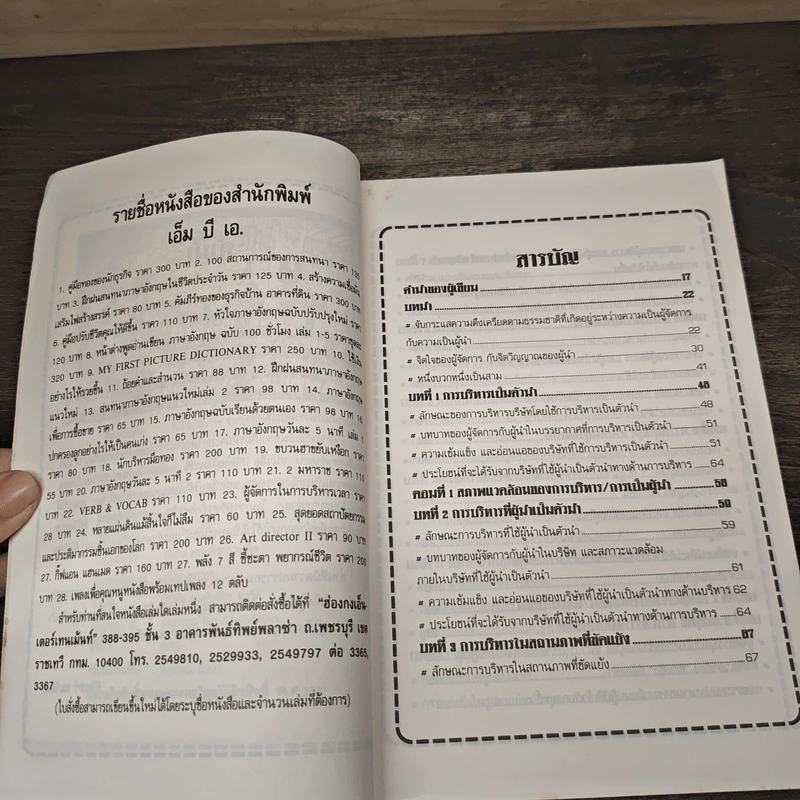 รายชื่อหนังสือของสำนักพิมพ์
เอ็ม บี เอ.
1. คู่มือทองของนักธุรกิจ ราคา 300 บาท 2. 100 สถานการณ์ของการสนทนา ราคา 135
บาท 3. ฝึกฝนสนทนาภาษาอังกฤษในชีวิตประจำวัน ราคา 125 บาท 4. สร้างความเชื่อมั่น
เสริมไฟสร้างสรรค์ ราคา 80 บาท 5. คัมภีร์ทองของธุรกิจบ้าน อาคารที่ดิน ราคา 300 บาท
6. คู่มือปรับชีวิตคุณให้ดีขึ้น ราคา 110 บาท 7. หัวใจภาษาอังกฤษฉบับปรับปรุงใหม่ ราคา
120 บาท 8. หน้าต่างพูดอ่านเขียน ภาษาอังกฤษ ฉบับ 100 ชั่วโมง เล่ม 1-5 ราคาชุดละ
320 บาท 9. MY FIRST PICTURE DICTIONARY ราคา 250 บาท 10. ใช้เงิน
อย่างไรให้รวยขึ้น 11. ถ้อยคำและสำนวน ราคา 88 บาท 12. ฝึกฝนสนทนาภาษาอังกฤษ
แนวใหม่ 13. สนทนาภาษาอังกฤษแนวใหม่เล่ม 2 ราคา 98 บาท 14. ภาษาอังกฤษ
เพื่อการซื้อขาย ราคา 65 บาท 15. ภาษาอังกฤษฉบับเรียนด้วยตนเอง ราคา 98 บาท 16
ปกครองลูกอย่างไรให้เป็นคนเก่ง ราคา 65 บาท 17. ภาษาอังกฤษวันละ 5 นาที เล่ม 1
ราคา 80 บาท 18. นักบริหารมือทอง ราคา 200 บาท 19. ขบวนฮายับเหงือก ราคา
55 บาท 20. ภาษาอังกฤษวันละ 5 นาที 2 ราคา 110 บาท 21. 2 มหาราช ราคา 110
บาท 22. VERB & VOCAB ราคา 110 บาท 23. ผู้จัดการในการบริหารเวลา ราคา
28 บาท 24. หลายแผ่นดินแม้สิ้นใจก็ไม่ลืม ราคา 60 บาท 25. สุดยอดสถาปัตยกรรม
และประติมากรรมชิ้นเอกของโลก ราคา 200 บาท 26. Art director II ราคา 90 บาท
27. กิ๊ฟแอน แฮนเมด ราคา 160 บาท 27. พลัง 7 สี ชี้ชะตา พยากรณ์ชีวิต ราคา 200
บาท 28. เพลงเพื่อคุณหนูหนังสือพร้อมเทปเพลง 12 ตลับ
สำหรับท่านที่สนใจหนังสือเล่มใดเล่มหนึ่ง สามารถติดต่อสั่งซื้อได้ที่ "ฮ่องกงเอ็น-
เตอร์เทนเม้นท์" 388-395 ชั้น 3 อาคารพันธ์ทิพย์พลาซ่า ถ.เพชรบุรี เขต
ราชเทวี กทม. 10400 โทร. 2549810, 2529933, 2549797 ต่อ 3365,
3367
(ใบสั่งซื้อสามารถเขียนขึ้นใหม่ได้โดยระบุชื่อหนังสือและจำนวนเล่มที่ต้องการ)
สารบัญ
คำนำของผู้เขียน 17
บทนำ 22
# จับกระแสความตึงเครียดตามธรรมชาติที่เกิดอยู่ระหว่างความเป็นผู้จัดการ
กับความเป็นผู้นำ 22
# จิตใจของผู้จัดการ กับจิตวิญญาณของผู้นำ 30
# หนึ่งบวกหนึ่งเป็นสาม 41
บทที่ 1 การบริหารเป็นตัวนำ 48
# ลักษณะของการบริหารบริษัทโดยใช้การบริหารเป็นตัวนำ 48
# บทบาทของผู้จัดการกับผู้นำในบรรยากาศที่การบริหารเป็นตัวนำ 51
# ความเข้มแข็ง และอ่อนแอของบริษัทที่การบริหารเป็นตัวนำ 51
# ประโยชน์ที่จะได้รับจากบริษัทที่ใช้ผู้นำเป็นตัวนำทางด้านการบริหาร 64
ตอนที่ 1 สภาพแวดล้อมของการบริหาร/การเป็นผู้นำ 58
บทที่ 2 การบริหารที่ผู้นำเป็นตัวนำ 59
# ลักษณะการบริหารที่ผู้นำเป็นตัวนำ 59
# บทบาทของผู้จัดการกับผู้นำในบริษัท และสภาวะแวดล้อม
ภายในบริษัทที่ใช้ผู้นำเป็นตัวนำ 61
# ความเข้มแข็ง และอ่อนแอของบริษัทที่ใช้ผู้นำเป็นตัวนำทางด้านบริหาร 62
# ประโยชน์ที่จะได้รับจากบริษัทที่ใช้ผู้นำเป็นตัวนำทางด้านการบริหาร 64
บทที่ 3 การบริหารในสถานภาพที่ขัดแย้ง 67
# ลักษณะการบริหารในสถานภาพที่ขัดแย้ง 67